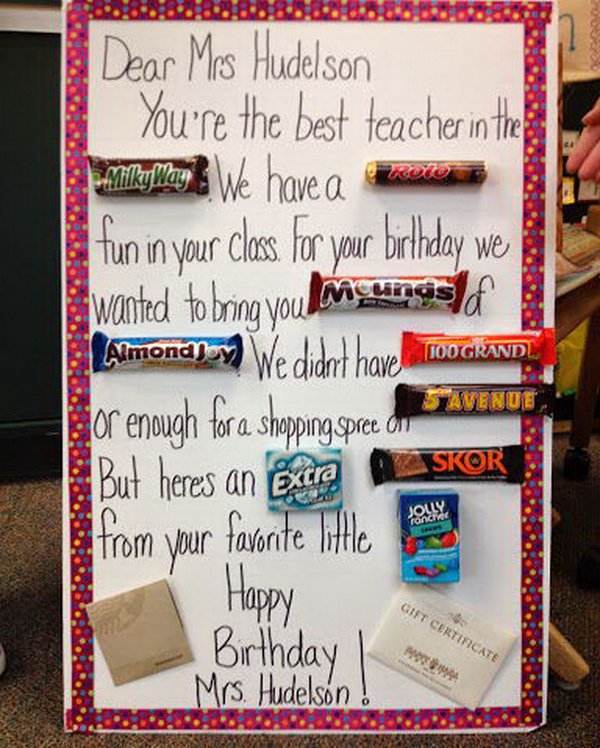 Dear Mrs Hudelson
You're the best teacher in the
MilkyWay . We have a ROLO
fun in your class. For your birthday we
wanted to bring you Mounds of
Almond Joy We didn't have 100 GRAND
or enough for a shopping spree on 5th AVENUE
But heres an Extra SKOR
from your favorite little JOLLY rancher
Happy
Birthday
Mrs. Hudelson!
GIFT CERTIFICATE